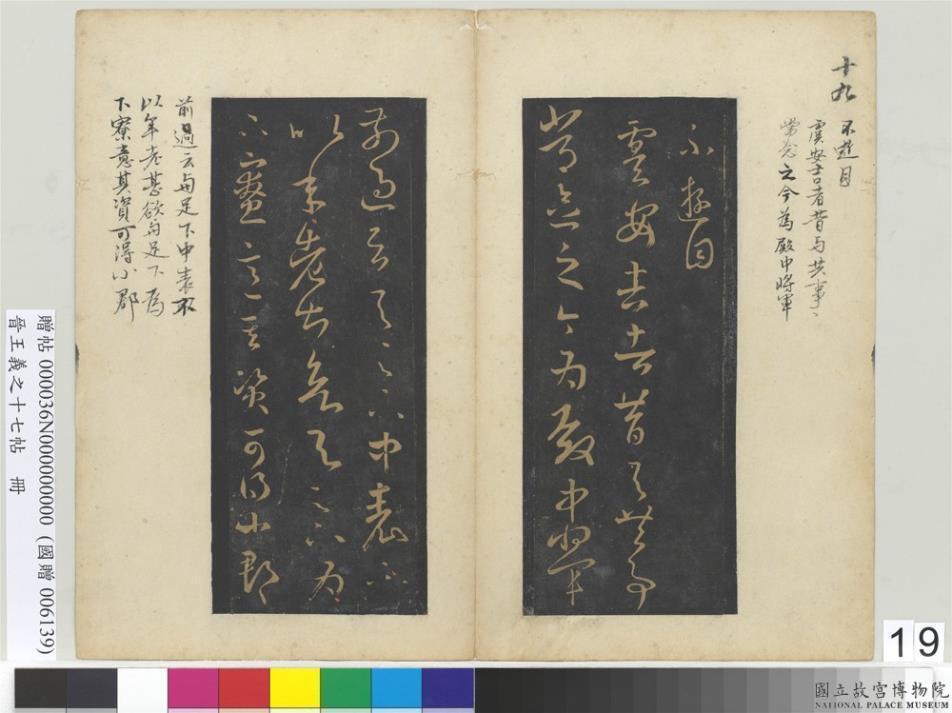 十九
不遊目
虞安吉者昔与共事〻
常念之今為殿中將軍
不遊目
虞安吉者昔与共事
常念之今为殿中将軍
前過云与足下中表不
以年老甚欲与足下为
下寮意其資可得小郡
前過云与足下中表不
以年老甚欲与足下為
下寮意其資可得小郡
贈帖 000036N000000000 (國贈 006139)
晉王羲之十七帖 冊
19
國立故宮博物院
NATIONAL PALACE MUSEUM